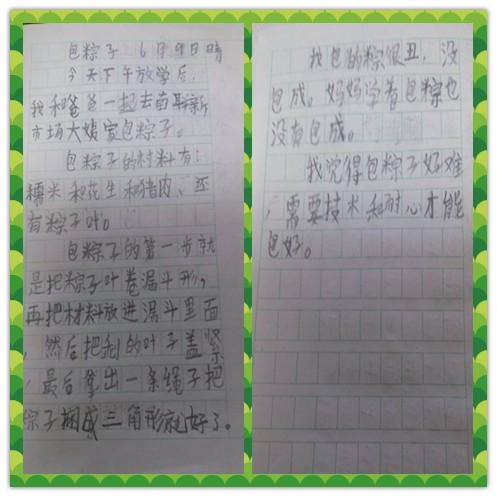 包粽子 6月9日晴
今天下午放学后，
我和爸爸一起去南联新
市场大姨家包粽子。
包粽子的材料有：
糯米和花生和猪肉、还
有粽子叶。
包粽子的第一步就
是把粽子叶卷漏斗形，
再把材料放进漏斗里面
，然后把剩的叶子盖紧
，最后拿出一条绳子把
粽子捆成三角形就好了。
我包的粽很丑，没
包成。妈妈学着包粽也
没有包成。
我觉得包粽子好难
，需要技术和耐心才能
包好。